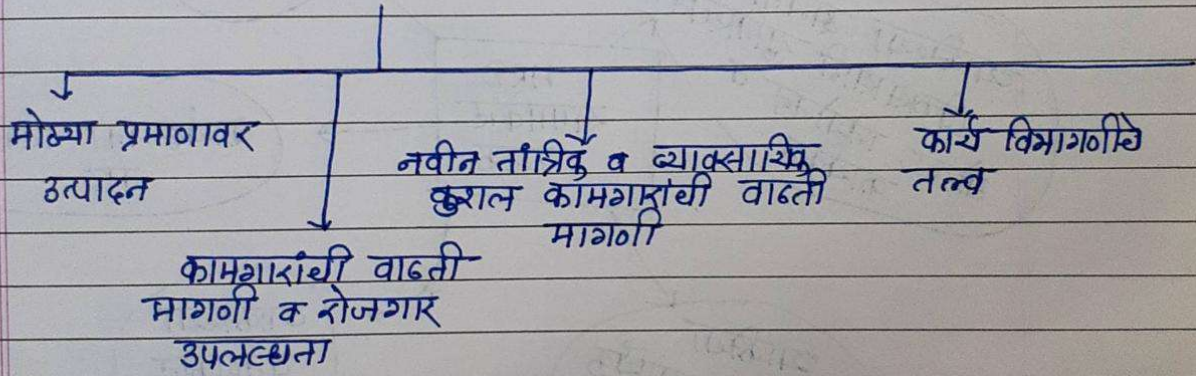 मोठ्या प्रमाणावर
उत्पादन
कामगारांची वाढती
मागणी व रोजगार
उपलब्धता
नवीन तांत्रिक व व्यावसायिक
कुशल कामगारांची वाढती
मागणी
कार्य विभागणीचे
तत्व